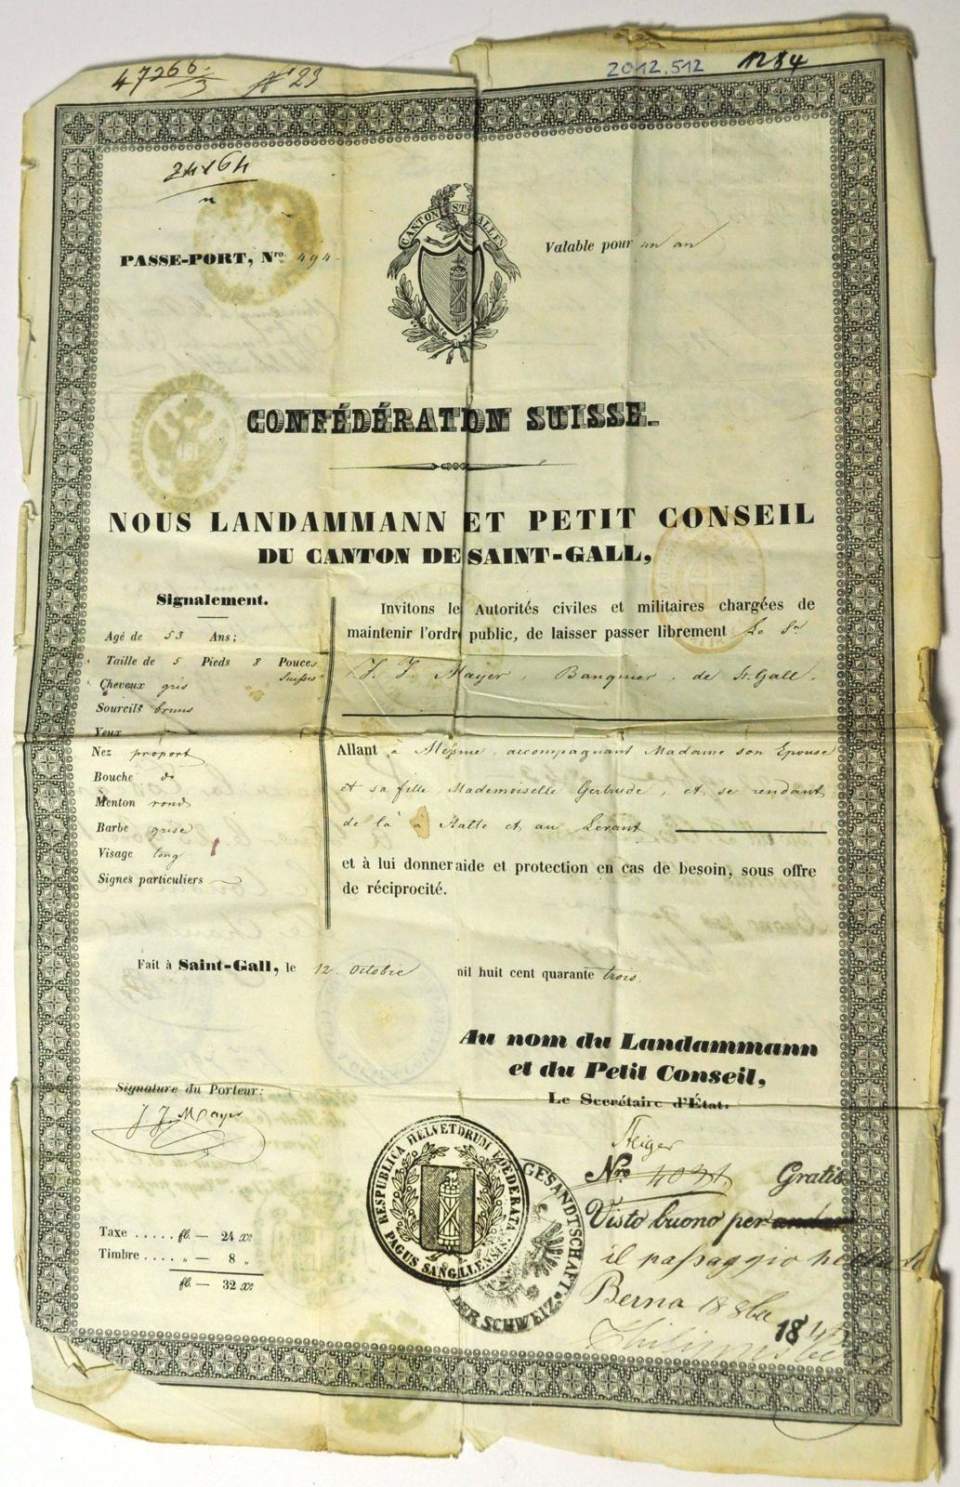 47266
N° 23
2012.512
1284
PASSE-PORT, Nro. 494
Valable pour un an
CANTON ST. GALLEN
CONFÉDÉRATION SUISSE.
NOUS LANDAMMANN ET PETIT CONSEIL
DU CANTON DE SAINT-GALL,
Signalement.
Agé de 53 Ans;
Taille de 5 Pieds 8 Pouces
Suisses
Cheveux gris
Sourcils bruns
Yeux
Nez proport
Bouche do
Menton rond
Barbe grise
Visage long
Signes particuliers
Invitons le Autorités civiles et militaires chargées de
maintenir l'ordre public, de laisser passer librement Le Sr
J. J. Mayer, Banquier, de St. Gall.
Allant à accompagnant Madame son Epouse
et sa fille Mademoiselle Gertrude, et se rendant
de là à et au Levant
et à lui donner aide et protection en cas de besoin, sous offre
de réciprocité.
Fait à Saint-Gall, le 12. Octobre mil huit cent quarante trois
Au nom du Landammann
et du Petit Conseil,
Le Secrétaire d'État.
Steiger
Signature du Porteur:
J J Mayer
RESPUBLICA HELVETORUM FOEDERATA
PAGUS SANGALLENSIS
GESANDTSCHAFT
DER SCHWEIZ
Nro. Gratis
Visto buono per andar
il passaggio
Berna 18 8bre 184
Taxe ..... fl. — 24 xr
Timbre .... „ — 8 „
fl. — 32 xr